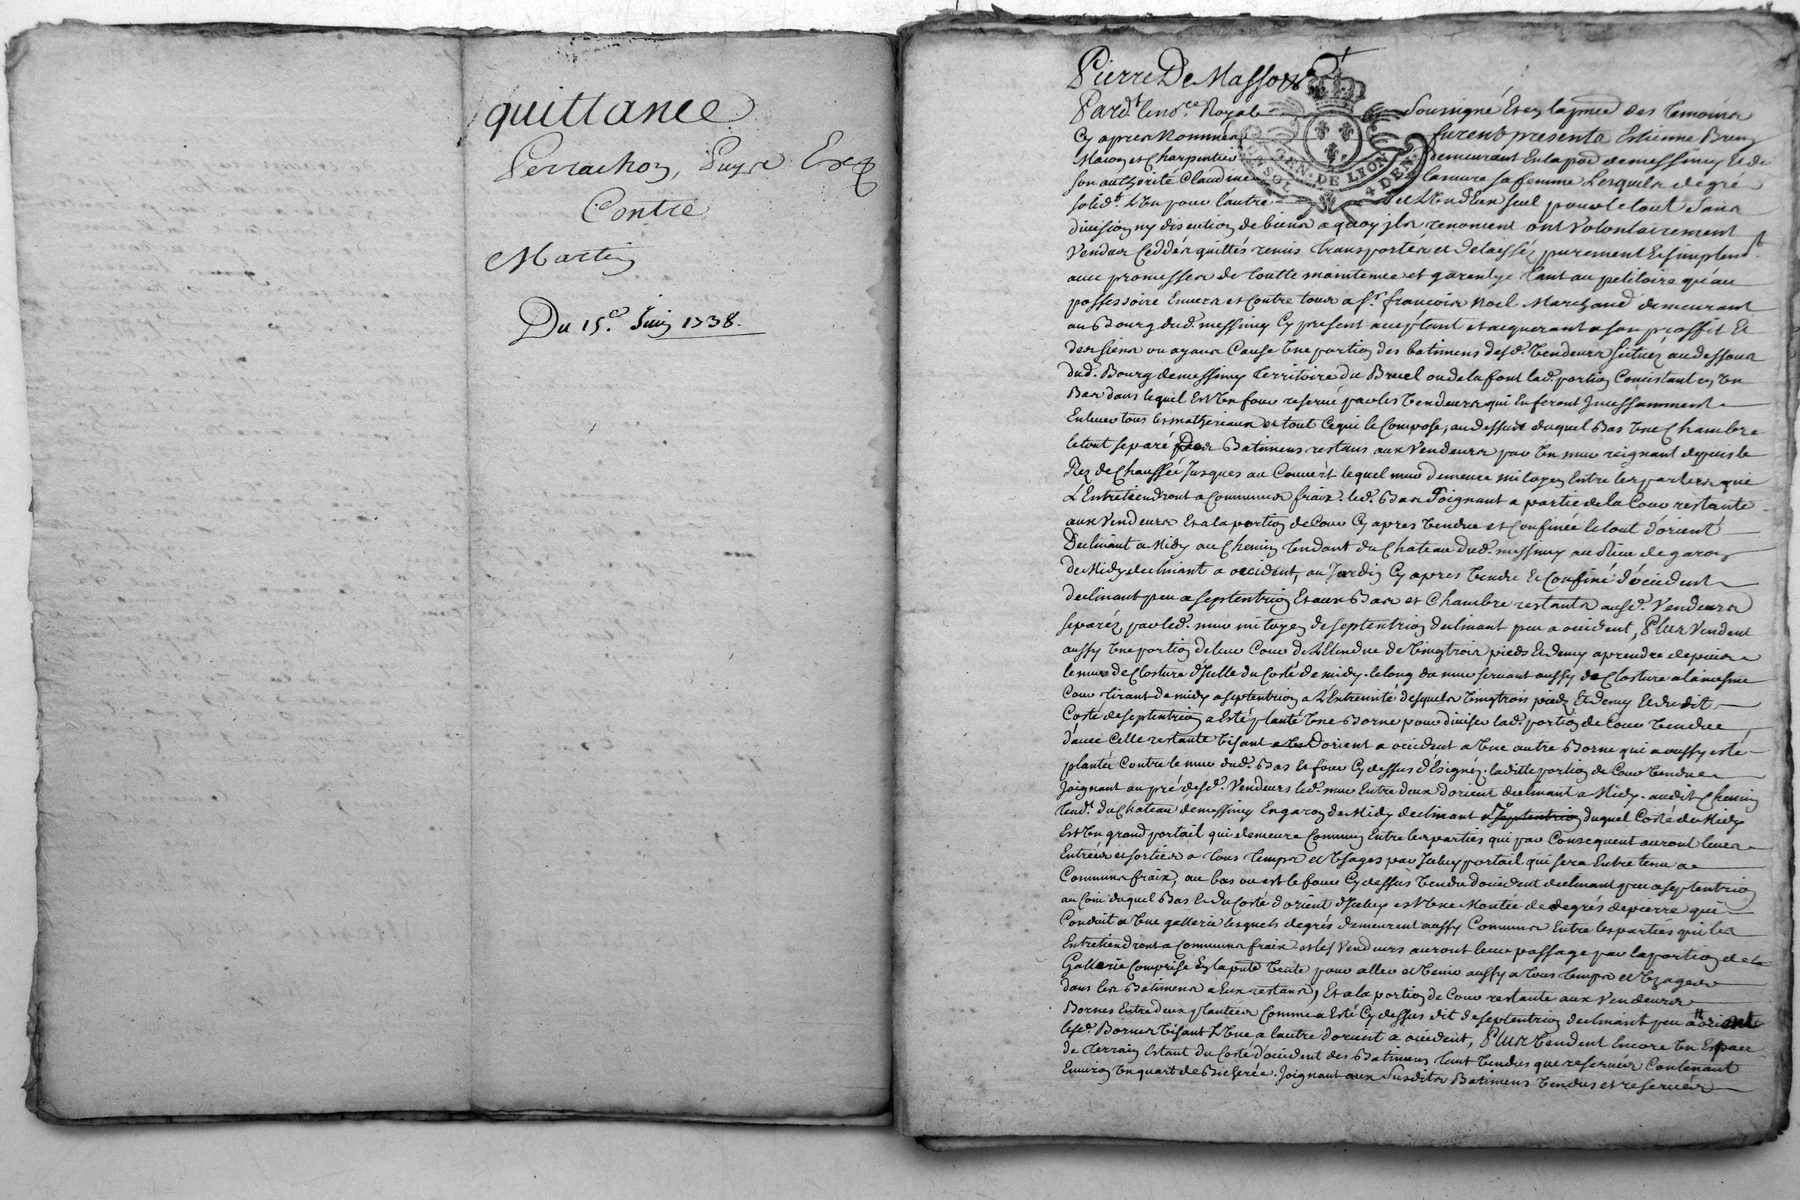 quittance
Perrachon, Puys Et
Contre
Martin
Du 15e. Juin 1738.
Pierre De Masson
GEN. DE LYON
UN SOL 4 DEN.
Pard.t le no.re Royal Soussigné Et en la pnce des temoins
Cy apres Nommés furent presents Estienne Brun
Maçon et Charpentier demeurant En la par. de messimy Et de
son authorité Claudine sa femme Lesquels de gré
solid.t L'Un pour l'autre Et L'Un d'Eux seul pour le tout Sans
division ny discution de biens a quoy jls renoncent ont Volontairement
Vendus Ceddés quittés remis transportés et delaissés purement Et simplem.t
avec promesses de toutte maintenue et garentye tant au petitoire qu'au
possessoire Envers et Contre tous a S.r françois Noel Marchand demeurant
au Bourg dud. messimy Cy present acceptant et acquerant a son proffit Et
des siens ou ayans Cause Une portion des batimens desd. Vendeurs scitués au dessous
dud. Bourg de messimy territoire du Bruel ou de la font lad. portion Consistant en Un
Bas dans lequel Est Un four reservé par les Vendeurs qui En feront Jncessamment
Enlever tous les matheriaux et tout Ce qui le Compose, au dessus duquel Bas Une Chambre
le tout separé Des Batimens restans aux Vendeurs par Un mur reignant depuis le
Rez de Chaussée Jusques au Couvert lequel mur demeure mitoyen Entre les parties qui
L'Entretiendront a Communs fraix. led. Bas Joignant a partie de la Cour restante
aux Vendeurs Et a la portion de Cour Cy apres Vendue et Confinée le tout d'orient
Declinant a Midy au Chemin tendant du Chateau dud. messimy au lieu de garon
de Midy declinant a occident, au Jardin Cy apres Vendu Et Confiné d'occident
declinant peu a septentrion Et aux Bas et Chambre restants ausd. Vendeurs
separés par led. mur mitoyen de septentrion declinant peu a occident, Plus Vendent
aussy Une portion de leur Cour de L'Etendue de Vingt trois pieds Et demy a prendre depuis
le mur de Closture d'Jcelle du Costé de midy. le long du mur servant aussy de Closture a la mesme
Cour tirant de midy a septentrion a L'Extremité desquels Vingt trois pieds Et demy Et dudit
Costé de septentrion a Esté planté Une Borne pour diviser lad. portion de Cour Vendue
d'avec Celle restante Visant d'orient a occident a Une autre Borne qui a aussy esté
plantée Contre le mur dud. Bas Et four Cy dessus d'Esignés. laditte portion de Cour Vendue
Joignant au pré desd. Vendeurs led. mur Entre deux d'orient declinant a Midy. audit Chemin
tend.t du Chateau de messimy En garon de Midy declinant a septentrion duquel Costé de Midy
Est Un grand portail qui demeure Commun Entre les parties qui par Consequent auront leurs
Entrées et sorties a tous temps et Usages par Jceluy portail qui sera Entretenu a
Communs fraix, au bas ou est le four Cy dessus Vendu d'occident declinant peu a septentrion
au Coin duquel Bas Et du Costé d'orient d'Jceluy est Une Montée de degrés de pierre qui
Conduit a Une gallerie lesquels degrés demeurent aussy Communs Entre les parties qui les
Entretiendront a Communs fraix et les Vendeurs auront leur passage par la portion de la
Gallerie Comprise En la pnte Vente pour aller et Venir aussy a tous temps et Usages
dans les Batimens a Eux restans, Et a la portion de Cour restante aux Vendeurs
Bornes Entre deux plantées Comme a Esté Cy dessus dit de septentrion declinant peu a orient
lesd. Bornes Visant L'Une a l'autre d'orient a occident, Plus Vendent Encore Un Espace
de terrain Estant du Costé d'occident des Batimens tant Vendus que reservés Contenant
Environ Un quart de Bicherée. Joignant aux Susdits Batimens Vendus et reservés